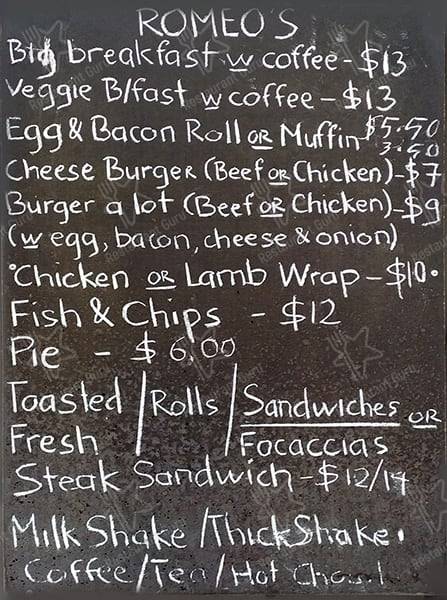 ROMEO'S
Big breakfast w coffee - $13
Veggie B/fast w coffee - $13
Egg & Bacon Roll OR Muffin - $5.50
3.50
Cheese Burger (Beef OR Chicken) - $7
Burger a lot (Beef OR Chicken) - $9
(w egg, bacon, cheese & onion)
Chicken OR Lamb Wrap - $10
Fish & Chips - $12
Pie - $6.00
Toasted / Rolls / Sandwiches OR
Fresh Focaccias
Steak Sandwich - $12/14
Milk Shake / Thick Shake
Coffee / Tea / Hot